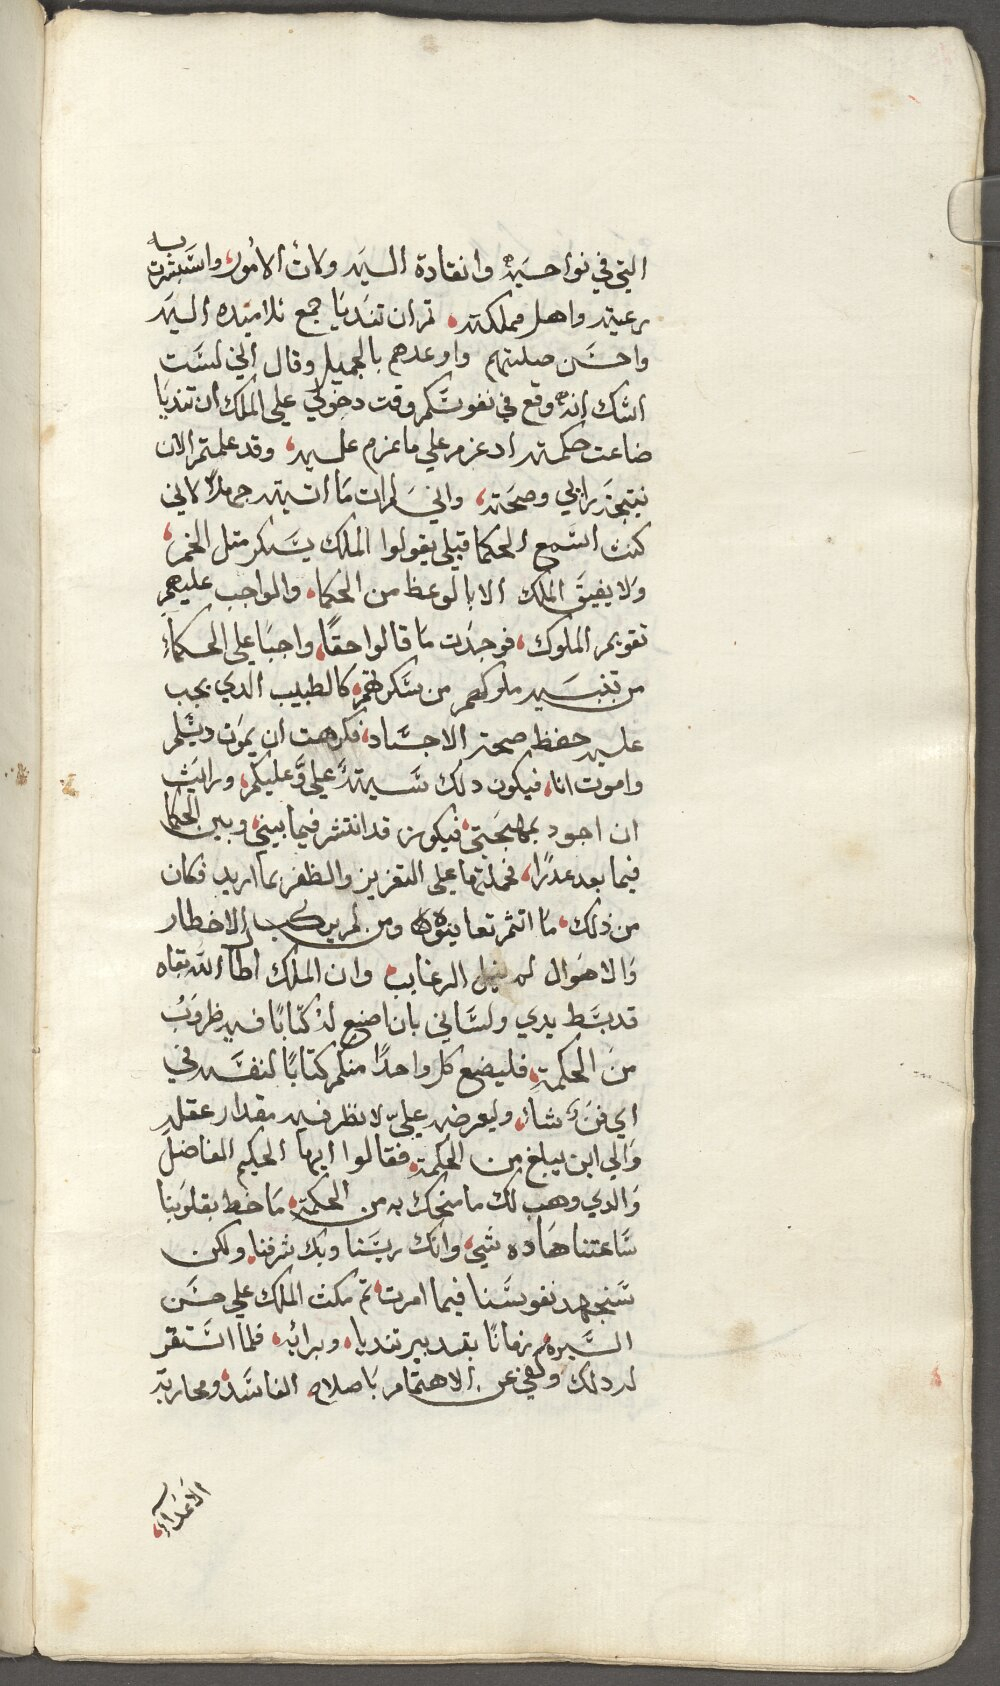 التي في نواحيه وانقادة اليه ولات الامور، واستبشرت به
رعيته واهل مملكته، ثم ان تنديا جمع تلاميده اليه
واحسن صلتهم واوعدهم بالجميل وقال اني لست
اشك انه وقع في نفوسكم وقت دخولي علي الملك ان تنديا
ضاعت حكمته اد عزم علي ما عزم عليه، وقد علمتم الان
نتيجة رايي وصحته، واني لم ات ما اتيته جهلاً لاني
كنت اسمع الحكما قبلي يقولوا الملك يسكر متل الخمر،
ولا يفيق الملك الا بالوعظ من الحكما، والواجب عليهم
تقويم الملوك، فوجدت ما قالوا حقًا، واجبا علي الحكماء
من تنبيه ملوكهم من سكرتهم، كالطبيب الدي يجب
عليه حفظ صحة الاجساد، فكرهت ان يموت دبشلم
واموت انا، فيكون دلك سيئة علي وعليكم، ورايت
ان اجود بمهجتي، فيكون قد انتشر فيما بيني وبين الحكما
فيما بعد عدرًا، فحملتها علي التغرير والظفر بما اريد فكان
من ذلك، ما انتم تعاينوه ومن لم يركب الاخطار
والاهوال لم ينل الرغايب، وان الملك اطال الله بقاه
قد بسط يدي ولساني بان اضع له كتابًا فيه ظروب
من الحكمة، فليضع كل واحدًا منكم كتابًا لنفسه في
اي فن شاء، وليعرضه علي لانظر فيه مقدار عقله
والي اين يبلغ من الحكمة، فقالوا ايها الحكيم الفاضل
والدي وهب لك ما منحك به من الحكمة، ما خطر بقلوبنا
ساعتنا هاده شي، وانك ريسنا وبك شرفنا، ولكن
سنجهد نفوسنا فيما امرت، ثم مكث الملك علي حسن
السيره، زمانًا بتدبير تنديا، وبرائيه، فلما استقر
له دلك وكفي عن الاهتمام باصلاح الفاسد، ومحاربة
الاعداء،